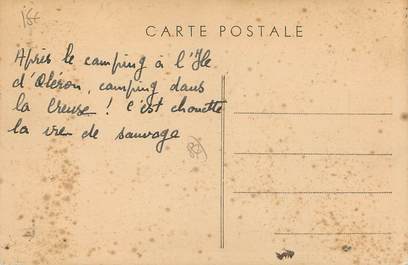 15€
CARTE POSTALE
Après le camping à l'Ile
d'Oléron, camping dans
la Creuse ! C'est chouette
la vie de sauvage